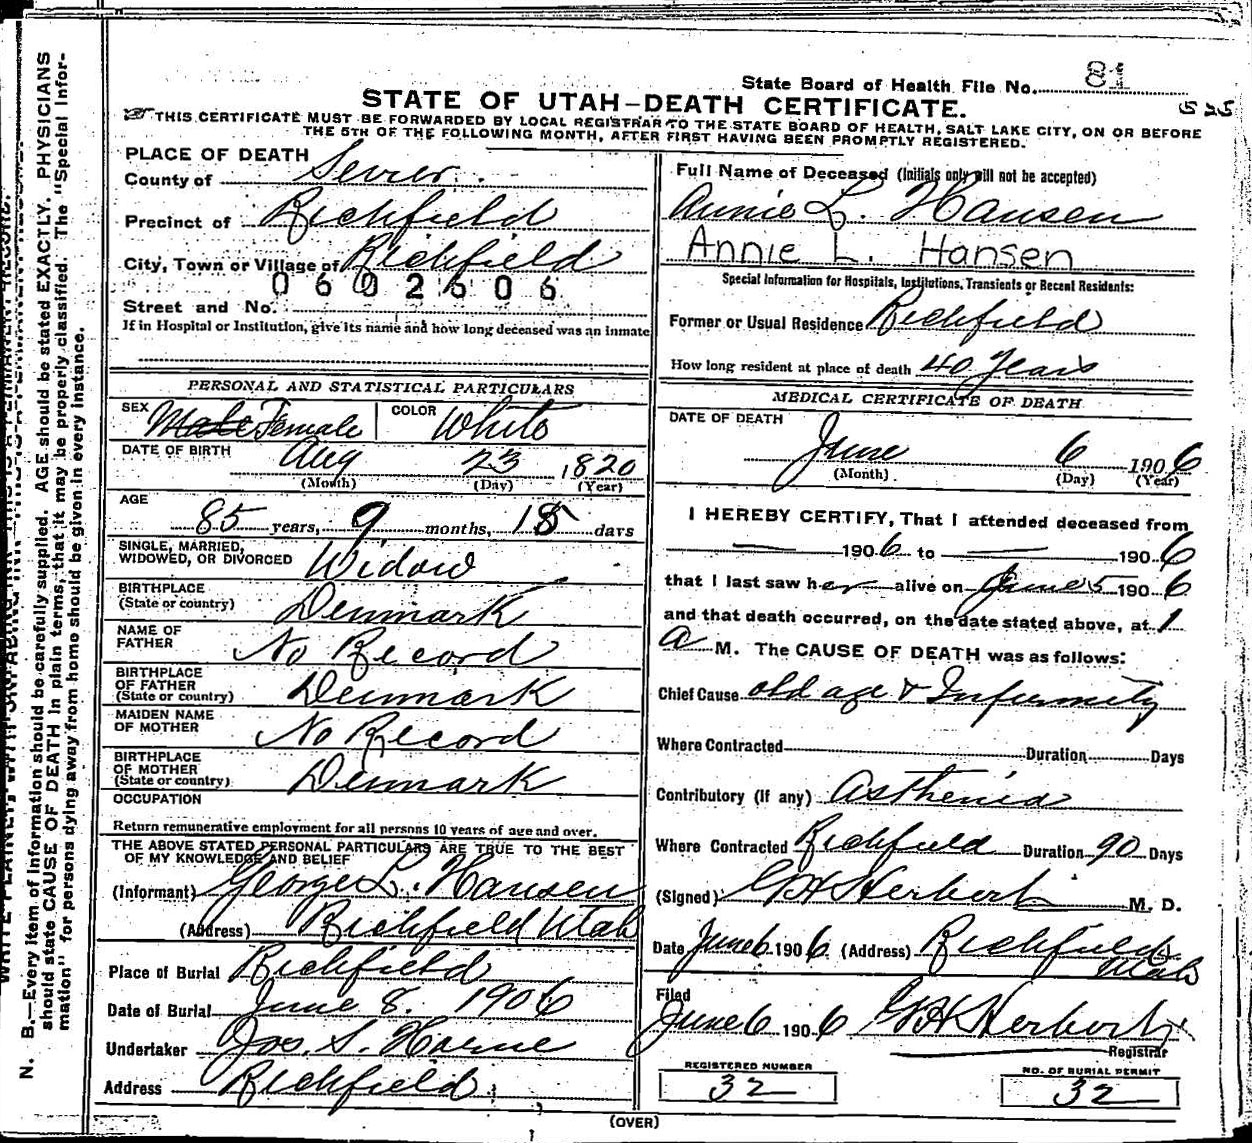 State Board of Health File No. 81
STATE OF UTAH—DEATH CERTIFICATE.
525
THIS CERTIFICATE MUST BE FORWARDED BY LOCAL REGISTRAR TO THE STATE BOARD OF HEALTH, SALT LAKE CITY, ON OR BEFORE
THE 5TH OF THE FOLLOWING MONTH, AFTER FIRST HAVING BEEN PROMPTLY REGISTERED.
PLACE OF DEATH
County of Sevier
Precinct of Richfield
City, Town or Village of Richfield
0602606
Street and No.
If in Hospital or Institution, give its name and how long deceased was an inmate
PERSONAL AND STATISTICAL PARTICULARS
SEX Male Female COLOR White
DATE OF BIRTH Aug 23 1820
(Month) (Day) (Year)
AGE
85 years, 9 months, 18 days
SINGLE, MARRIED,
WIDOWED, OR DIVORCED Widow
BIRTHPLACE
(State or country) Denmark
NAME OF
FATHER No Record
BIRTHPLACE
OF FATHER
(State or country) Denmark
MAIDEN NAME
OF MOTHER No Record
BIRTHPLACE
OF MOTHER
(State or country) Denmark
OCCUPATION
Return remunerative employment for all persons 10 years of age and over.
THE ABOVE STATED PERSONAL PARTICULARS ARE TRUE TO THE BEST
OF MY KNOWLEDGE AND BELIEF
(Informant) George L. Hansen
(Address) Richfield Utah
Place of Burial Richfield
Date of Burial June 8. 1906
Undertaker Jos. S. Horne
Address Richfield
Full Name of Deceased (Initials only will not be accepted)
Annie L. Hansen
Annie L. Hansen
Special Information for Hospitals, Institutions, Transients or Recent Residents:
Former or Usual Residence Richfield
How long resident at place of death 40 Years
MEDICAL CERTIFICATE OF DEATH
DATE OF DEATH
June 6 1906
(Month) (Day) (Year)
I HEREBY CERTIFY, That I attended deceased from
— 1906 to — 1906
that I last saw her alive on June 5 1906
and that death occurred, on the date stated above, at 1
a M. The CAUSE OF DEATH was as follows:
Chief Cause old age & Infirmity
Where Contracted Duration Days
Contributory (If any) Asthenia
Where Contracted Richfield Duration 90 Days
(Signed) G H Herbert M. D.
Date June 6 1906 (Address) Richfield
Utah
Filed
June 6 1906 G H Herbert
Registrar
REGISTERED NUMBER
32
NO. OF BURIAL PERMIT
32
(OVER)
N. B.—Every item of information should be carefully supplied. AGE should be stated EXACTLY. PHYSICIANS
should state CAUSE OF DEATH in plain terms, that it may be properly classified. The "Special Infor-
mation" for persons dying away from home should be given in every instance.